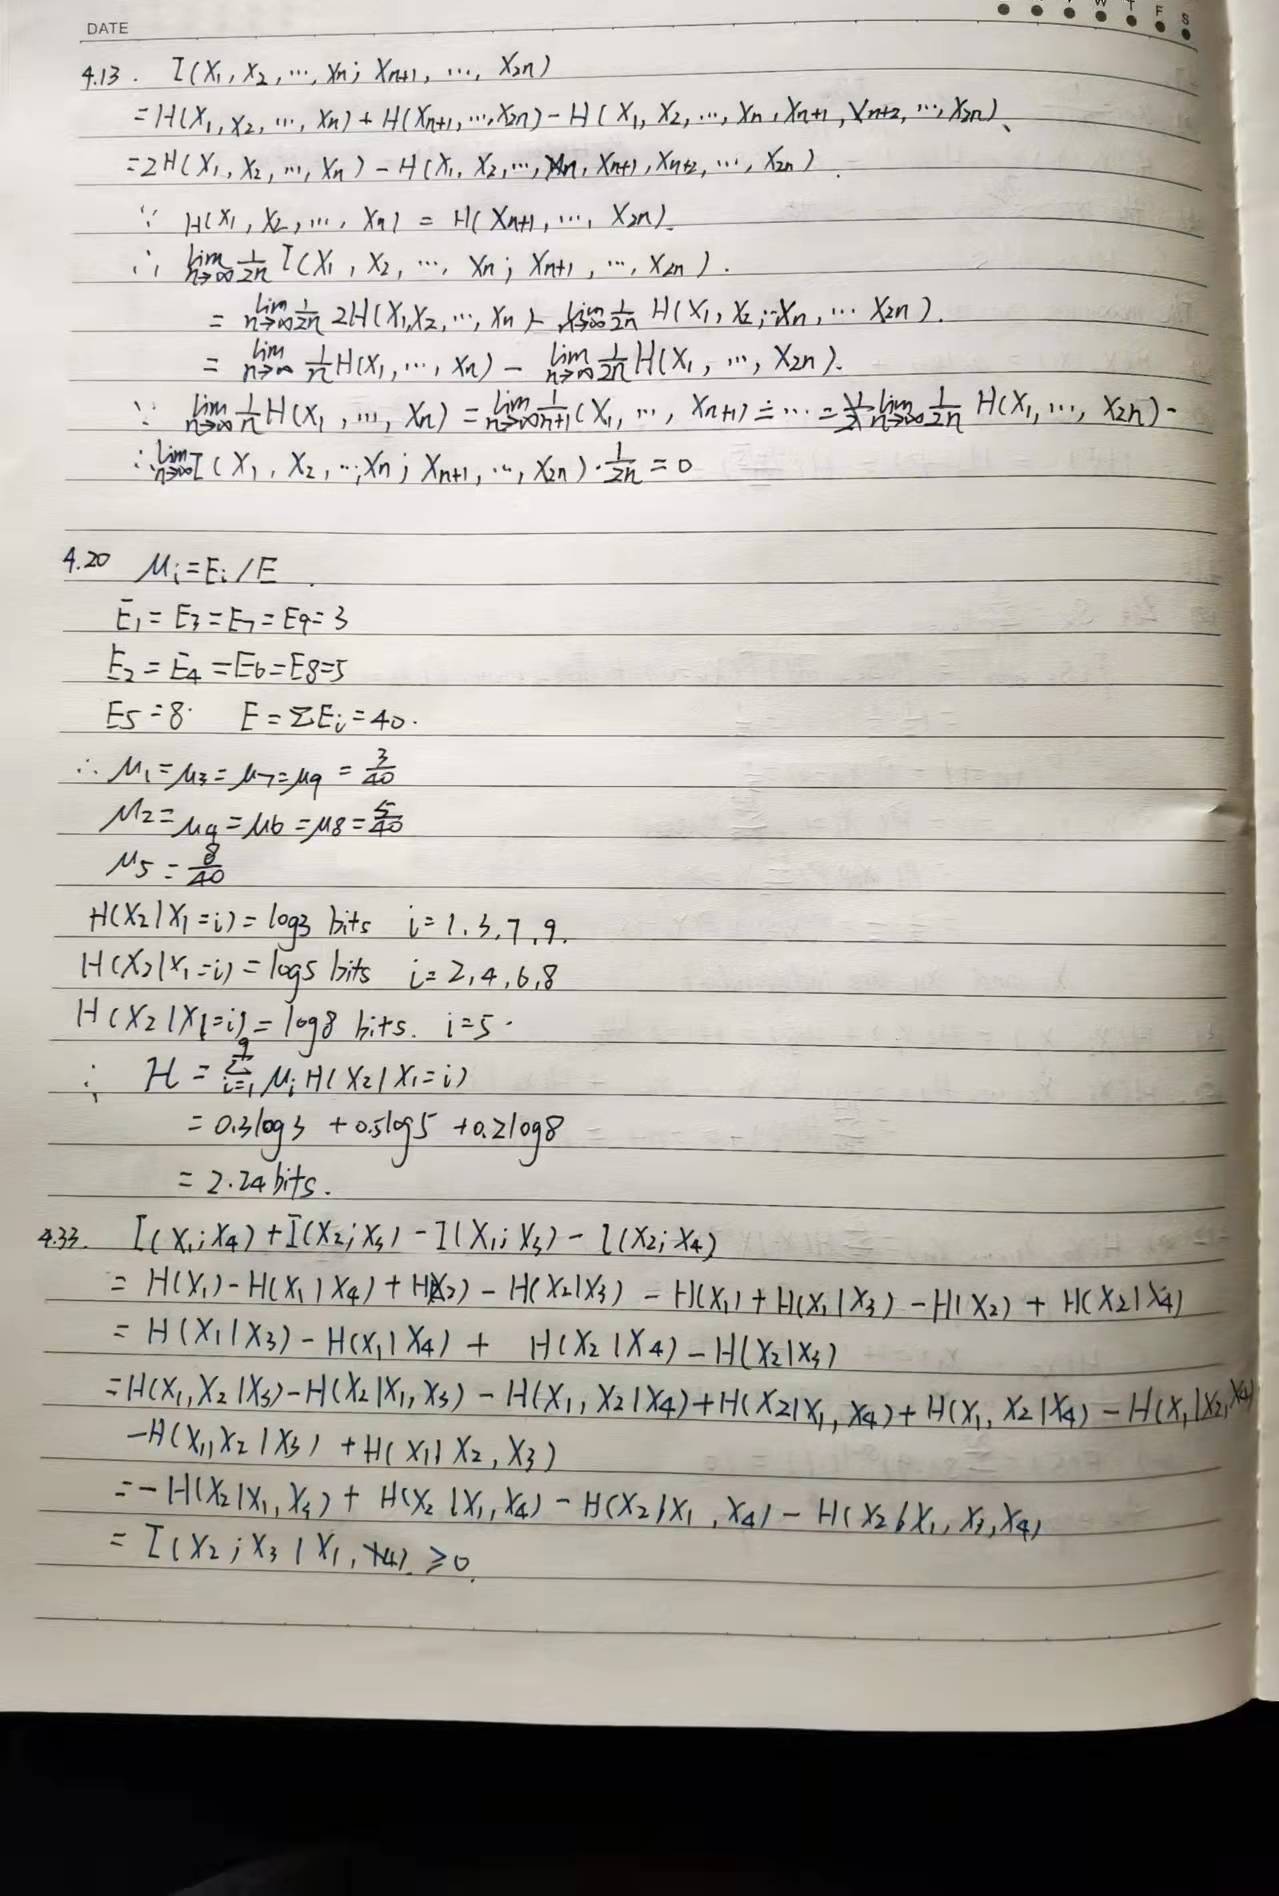 DATE
W T F S
4.13. I(X₁, X₂, ..., Xn; Xn+1, ..., X2n)
=H(X₁, X₂, ..., Xn) + H(Xn+1, ..., X2n) - H(X₁, X₂, ..., Xn, Xn+1, Xn+2, ..., X2n).
=2H(X₁, X₂, ..., Xn) - H(X₁, X₂, ..., Xn, Xn+1, Xn+2, ..., X2n).
∵ H(X₁, X₂, ..., Xn) = H(Xn+1, ..., X2n).
∴ lim n→∞ 1/2n I(X₁, X₂, ..., Xn; Xn+1, ..., X2n).
= lim n→∞ 1/2n 2H(X₁, X₂, ..., Xn) - lim n→∞ 1/2n H(X₁, X₂, ... Xn, ... X2n).
= lim n→∞ 1/n H(X₁, ..., Xn) - lim n→∞ 1/2n H(X₁, ..., X2n).
∵ lim n→∞ 1/n H(X₁, ..., Xn) = lim n→∞ 1/n+1 (X₁, ..., Xn+1) = ... = lim n→∞ 1/2n H(X₁, ..., X2n).
∴ lim n→∞ I(X₁, X₂, ..., Xn; Xn+1, ..., X2n) · 1/2n = 0
4.20 μi = Ei / E
E₁ = E₃ = E₇ = E₉ = 3
E₂ = E₄ = E₆ = E₈ = 5
E₅ = 8. E = ΣEi = 40.
∴ μ₁ = μ₃ = μ₇ = μ₉ = 3/40
μ₂ = μ₄ = μ₆ = μ₈ = 5/40
μ₅ = 8/40
H(X₂|X₁=i) = log3 bits i = 1, 3, 7, 9.
H(X₂|X₁=i) = log5 bits i = 2, 4, 6, 8
H(X₂|X₁=i) = log8 bits. i = 5.
∴ H = Σ i=1 9 μi H(X₂|X₁=i)
= 0.3log3 + 0.5log5 + 0.2log8
= 2.24 bits.
4.33. I(X₁; X₄) + I(X₂; X₃) - I(X₁; X₃) - I(X₂; X₄)
= H(X₁) - H(X₁|X₄) + H(X₂) - H(X₂|X₃) - H(X₁) + H(X₁|X₃) - H(X₂) + H(X₂|X₄)
= H(X₁|X₃) - H(X₁|X₄) + H(X₂|X₄) - H(X₂|X₃)
=H(X₁, X₂|X₃) - H(X₂|X₁, X₃) - H(X₁, X₂|X₄) + H(X₂|X₁, X₄) + H(X₁, X₂|X₄) - H(X₁|X₂, X₄)
-H(X₁, X₂|X₃) + H(X₁|X₂, X₃)
= -H(X₂|X₁, X₃) + H(X₂|X₁, X₄) - H(X₂|X₁, X₄) - H(X₂|X₁, X₃, X₄)
= I(X₂; X₃|X₁, X₄) ≥ 0.